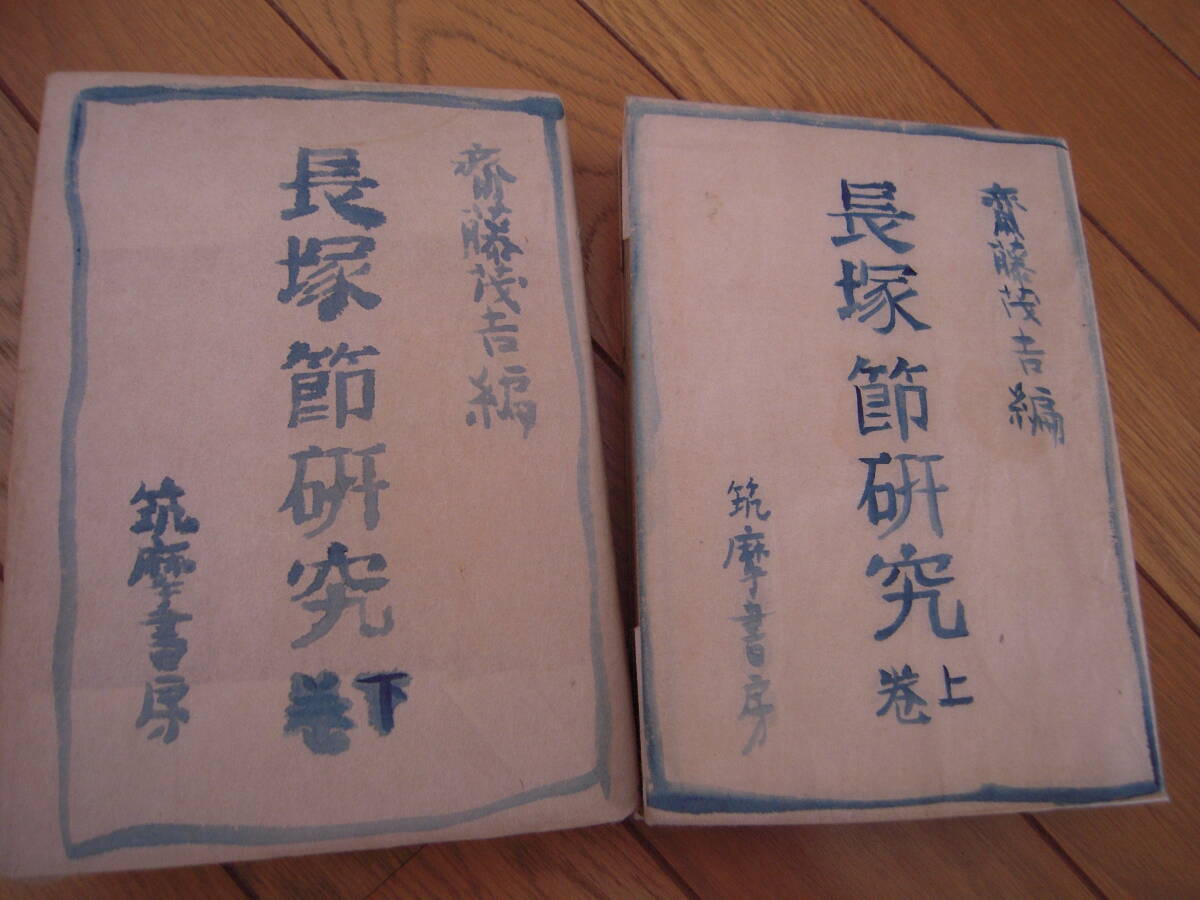 齋藤茂吉編
長塚節研究
上卷
筑摩書房
齋藤茂吉編
長塚節研究
下卷
筑摩書房